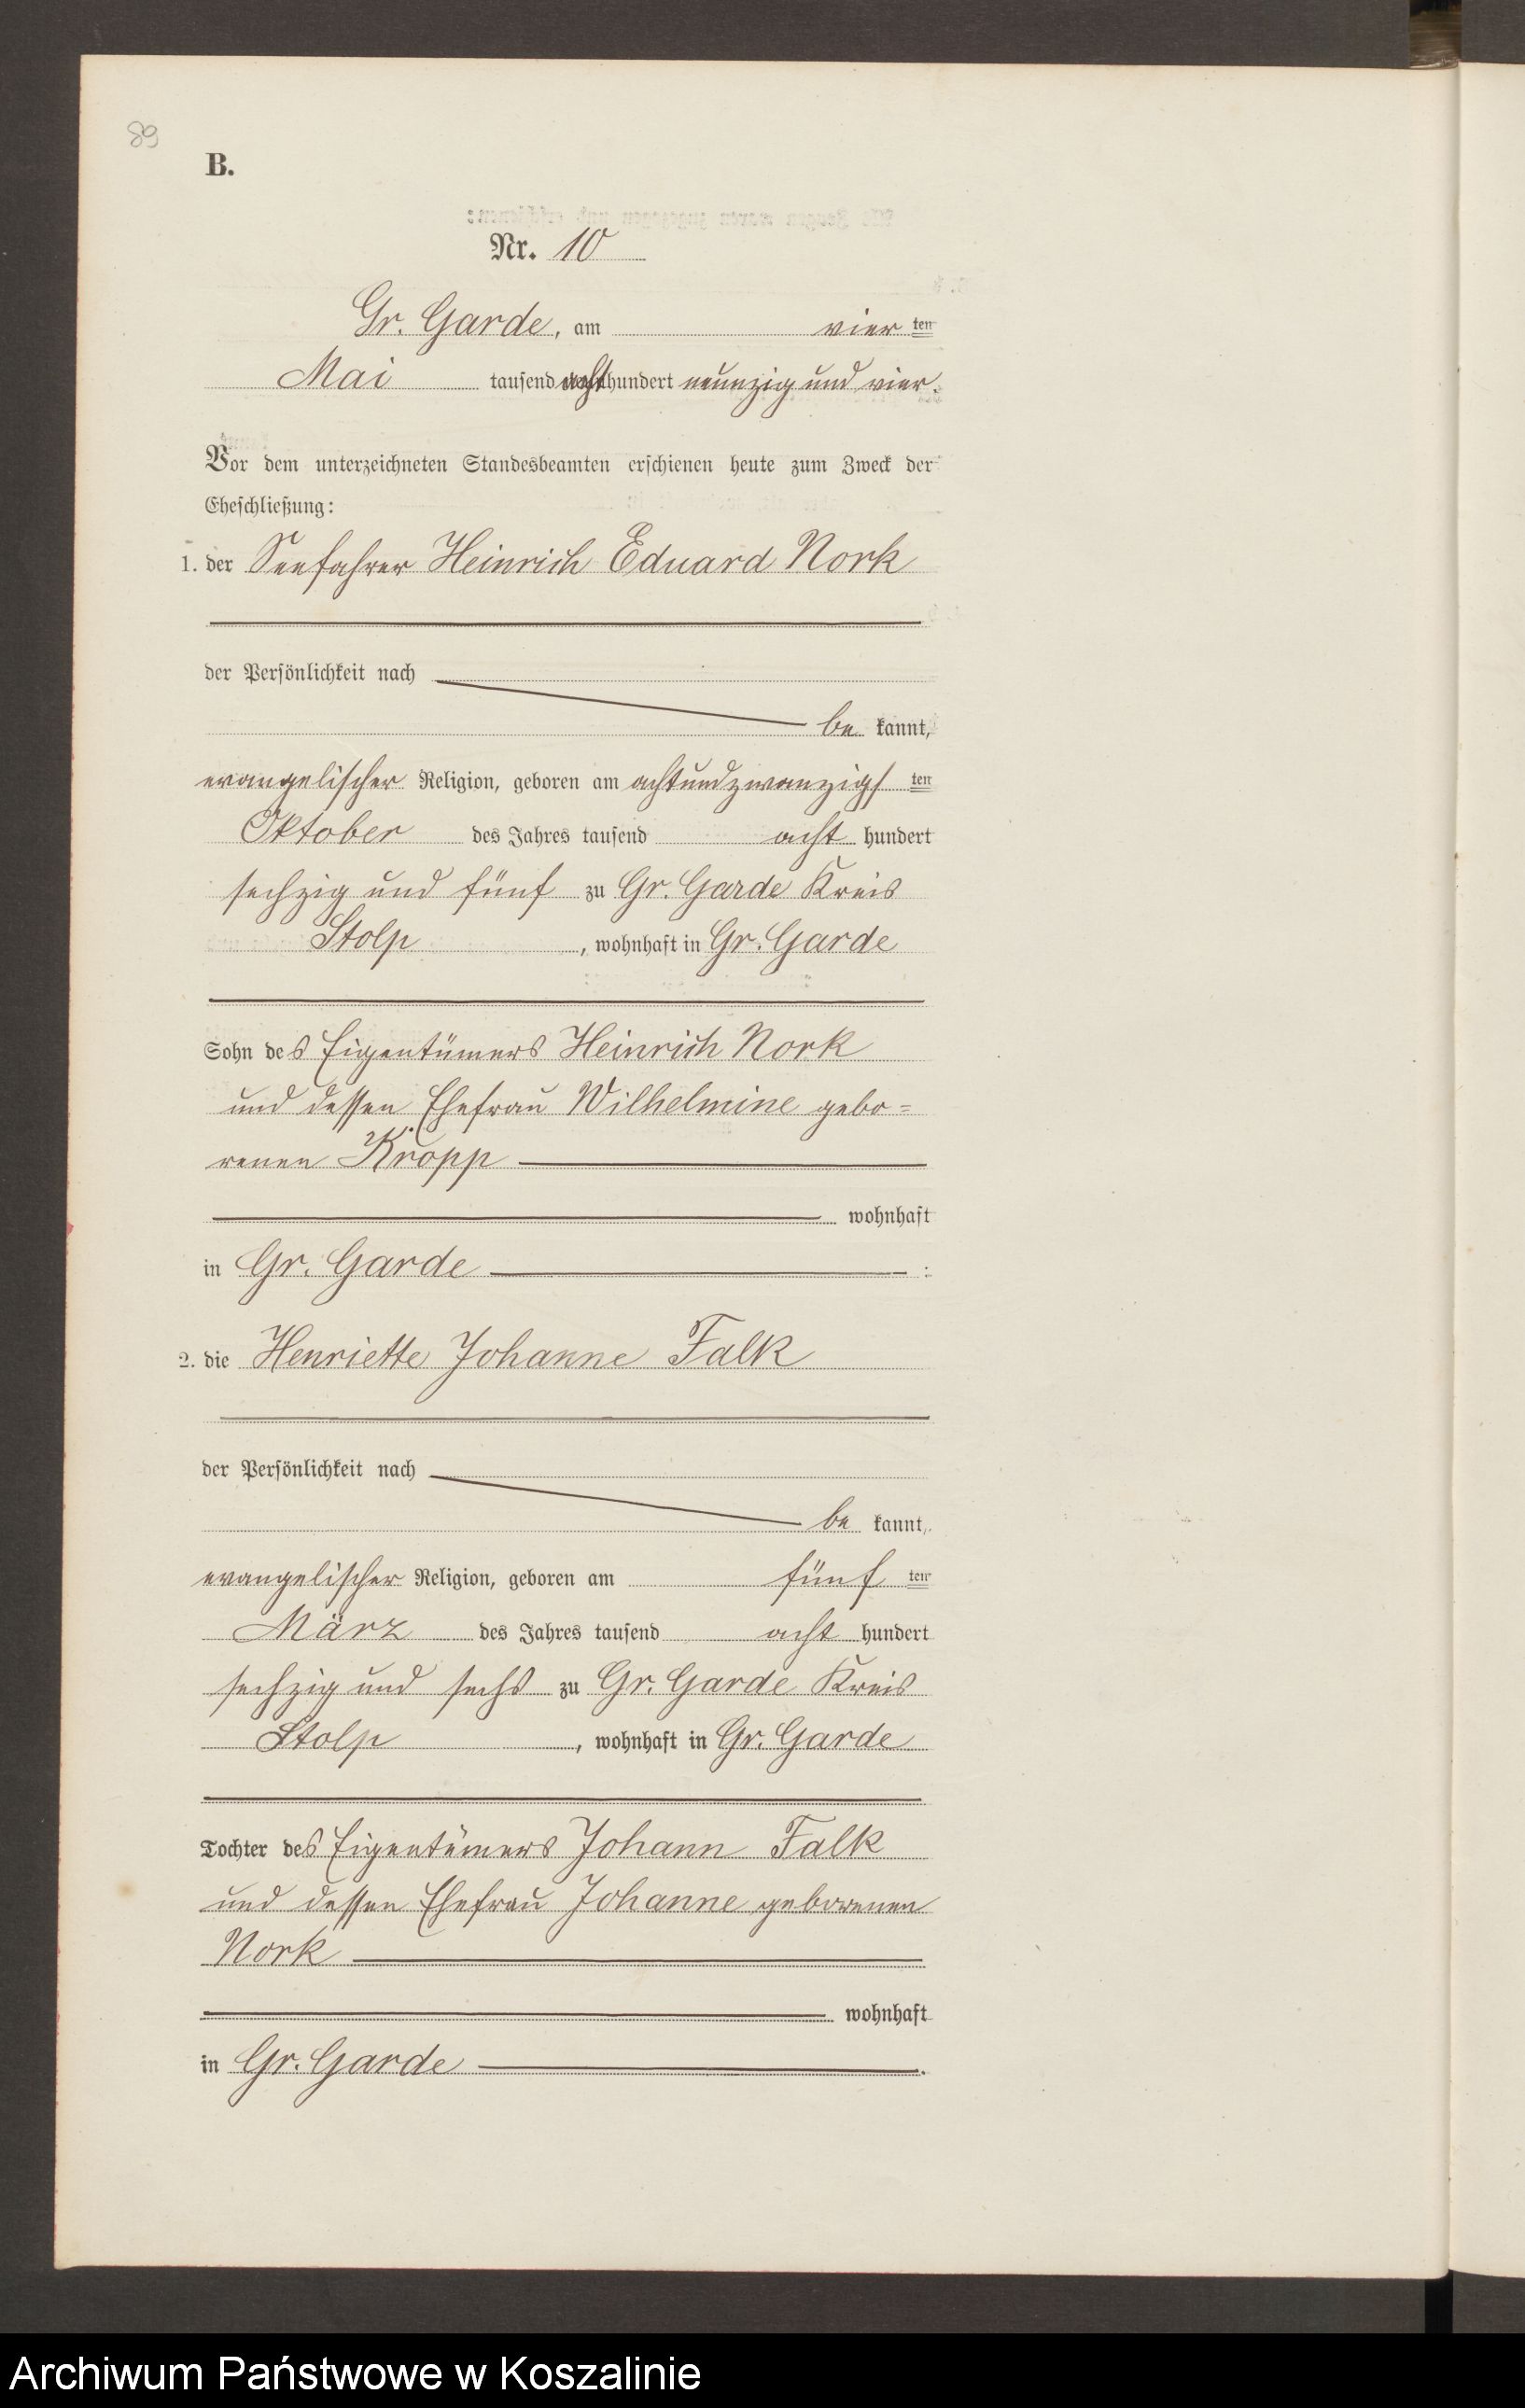 89
B.
Nr. 10
Gr. Garde, am vier ten
Mai tausend acht hundert neunzig und vier.
Vor dem unterzeichneten Standesbeamten erschienen heute zum Zweck der
Eheschließung:
1. der Seefahrer Heinrich Eduard Nork
der Persönlichkeit nach
be kannt,
evangelischer Religion, geboren am achtundzwanzigs ten
Oktober des Jahres tausend acht hundert
sechzig und fünf zu Gr. Garde Kreis
Stolp, wohnhaft in Gr. Garde
Sohn des Eigentümers Heinrich Nork
und dessen Ehefrau Wilhelmine gebo=
renen Kropp
wohnhaft
in Gr. Garde :
2. die Henriette Johanne Falk
der Persönlichkeit nach
be kannt,
evangelischer Religion, geboren am fünf ten
März des Jahres tausend acht hundert
sechzig und sechs zu Gr. Garde Kreis
Stolp, wohnhaft in Gr. Garde
Tochter des Eigentümers Johann Falk
und dessen Ehefrau Johanne geborenen
Nork
wohnhaft
in Gr. Garde .
Archiwum Państwowe w Koszalinie